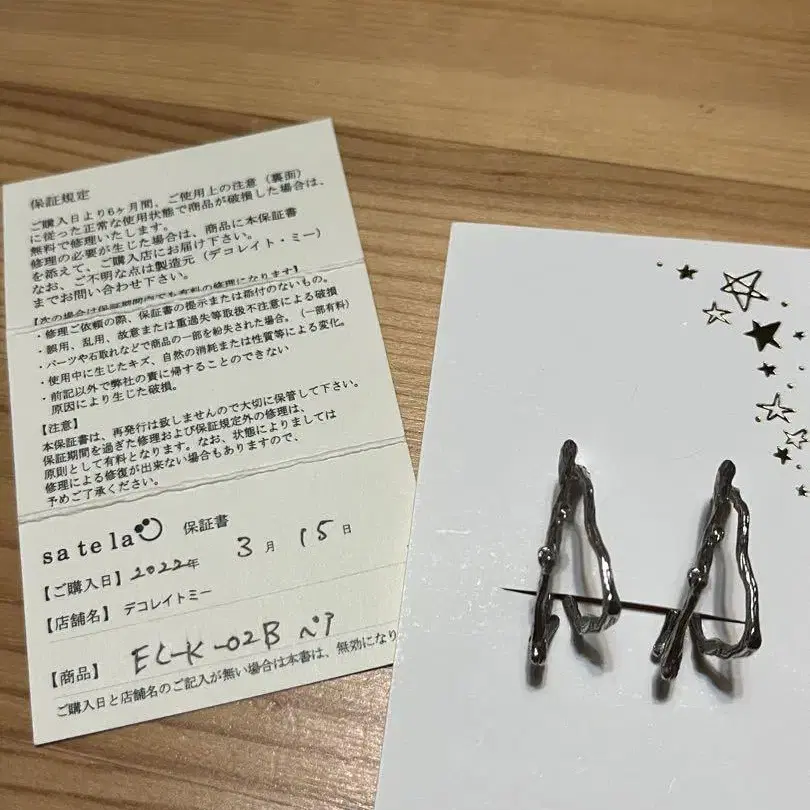 保証規定
ご購入日より6ヶ月間、ご使用上の注意（裏面）
に従った正常な使用状態で商品が破損した場合は、
無料で修理いたします。
修理の必要が生じた場合は、商品に本保証書
を添えて、ご購入店にお届け下さい。
なお、ご不明な点は製造元（デコレイト・ミー）
までお問い合わせ下さい。
【次の場合は保証期間内でも有料の修理になります】
・修理ご依頼の際、保証書の提示または添付のないもの。
・誤用、乱用、故意または重過失等取扱不注意による破損
・パーツや石取れなどで商品の一部を紛失された場合。（一部有料）
・使用中に生じたキズ、自然の消耗または性質等による変化。
・前記以外で弊社の責に帰することのできない
原因により生じた破損。
【注意】
本保証書は、再発行は致しませんので大切に保管して下さい。
保証期間を過ぎた修理および保証規定外の修理は、
原則として有料となります。なお、状態によりましては
修理による修復が出来ない場合もありますので、
予めご了承ください。
satela 保証書
【ご購入日】2022年 3月 15日
【店舗名】デコレイトミー
【商品】EC-K-02B ペア
ご購入日と店舗名のご記入が無い場合は本書は、無効になり